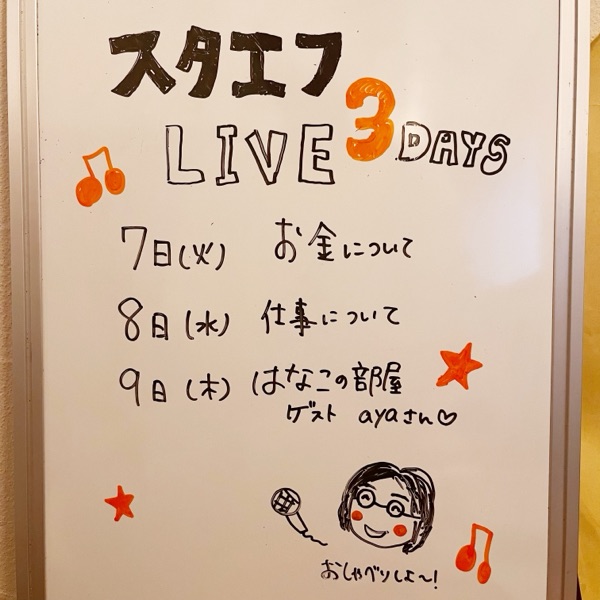 スタエフ
LIVE 3 DAYS
7日(火) お金について
8日(水) 仕事について
9日(木) はなこの部屋
ゲスト ayaさん♡
おしゃべりしよ〜!